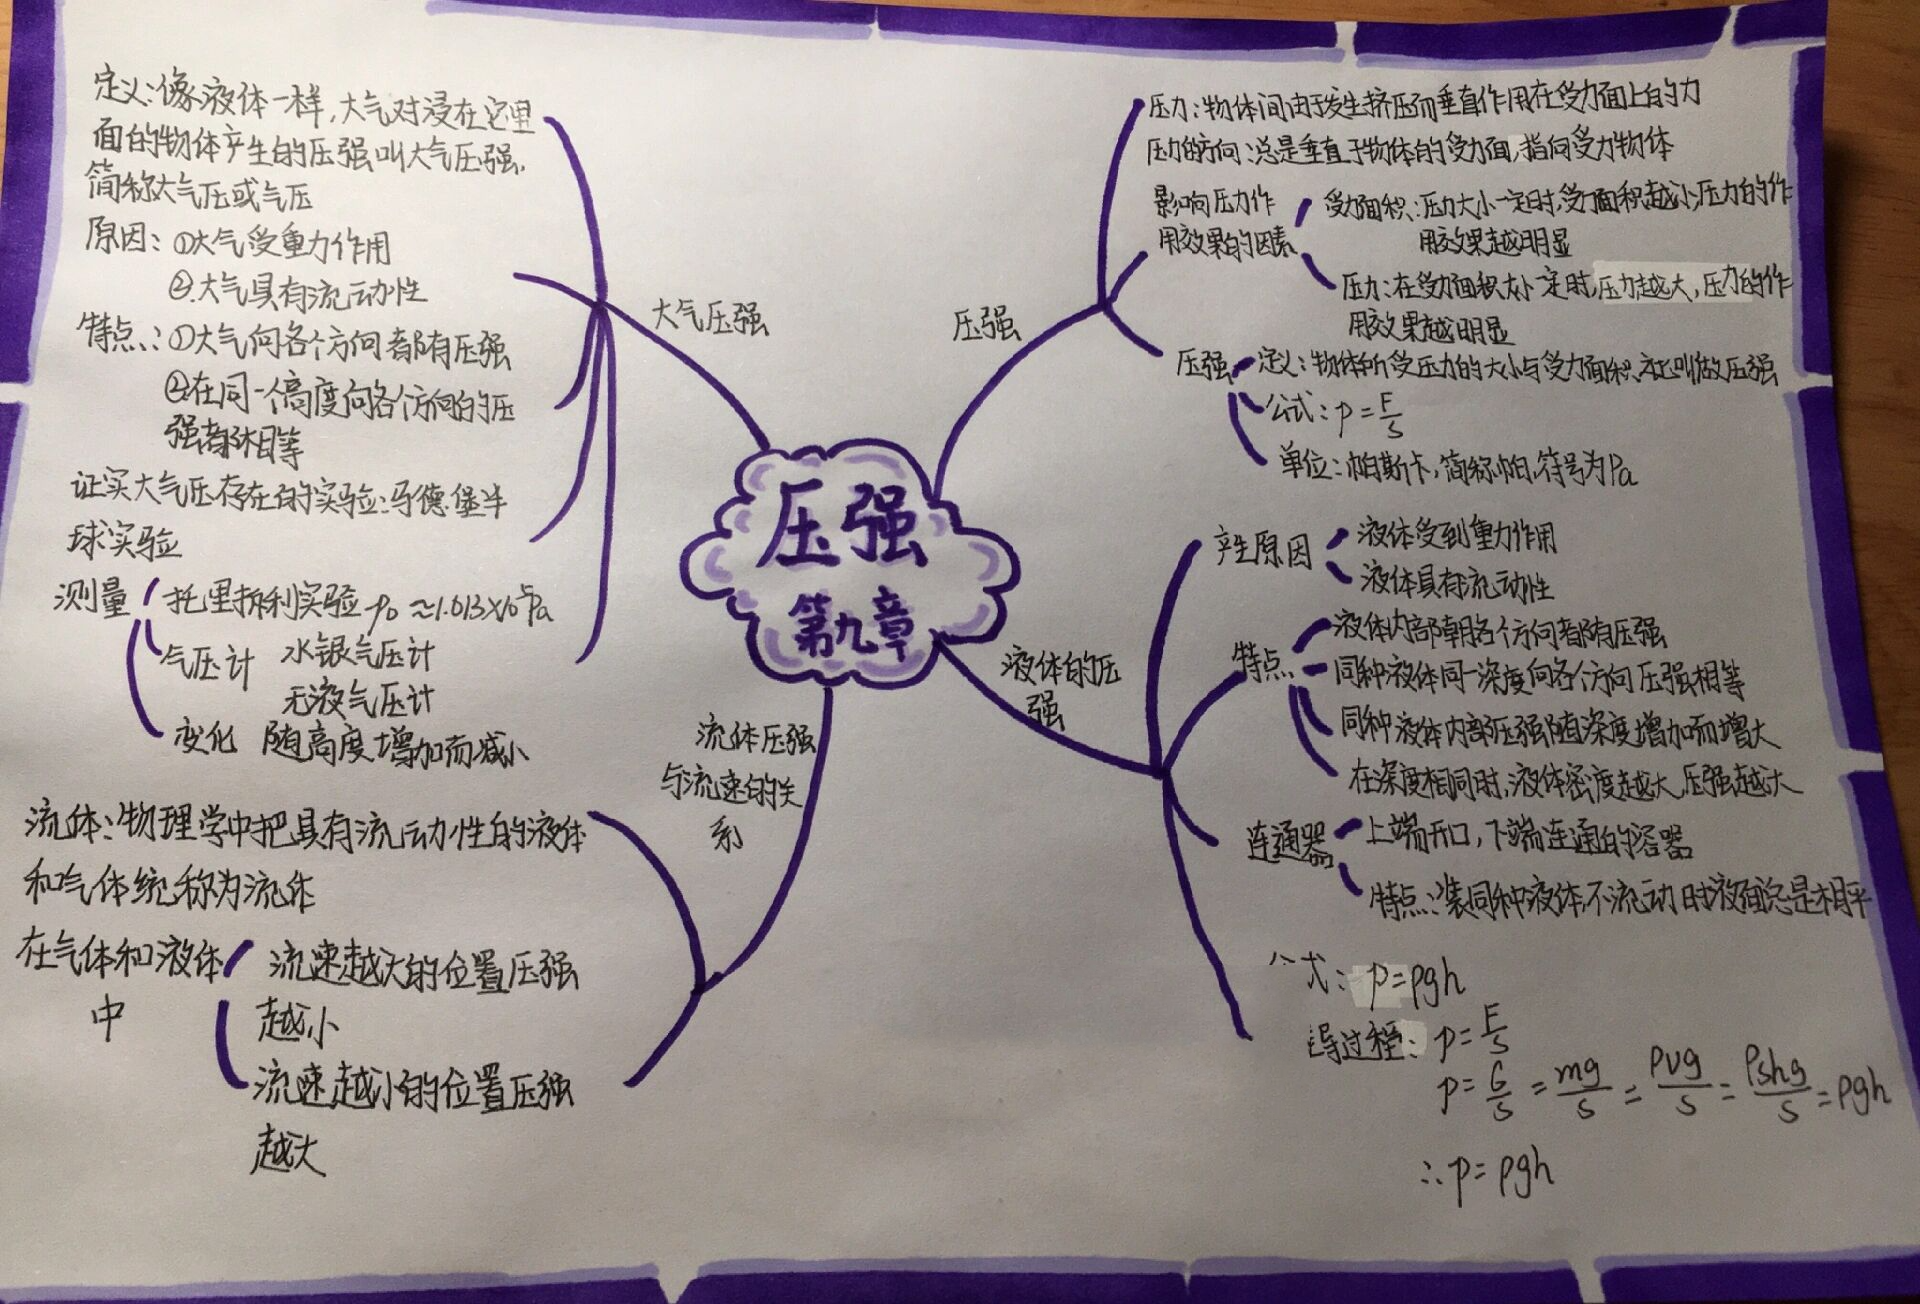 压强
第九章
压强
压力:物体间由于发生挤压而垂直作用在受力面上的力
压力的方向:总是垂直于物体的受力面,指向受力物体
影响压力作
用效果的因素
受力面积:压力大小一定时,受力面积越小,压力的作
用效果越明显
压力:在受力面积大小一定时,压力越大,压力的作
用效果越明显
压强
定义:物体所受压力的大小与受力面积之比叫做压强
公式:p=F/S
单位:帕斯卡,简称帕,符号为Pa
液体的压
强
产生原因
液体受到重力作用
液体具有流动性
特点
液体内部朝各个方向都有压强
同种液体同一深度向各个方向压强相等
同种液体内部压强随深度增加而增大
在深度相同时,液体密度越大,压强越大
连通器
上端开口,下端连通的容器
特点:装同种液体,不流动时液面总是相平
公式:p=ρgh
导过程:p=F/S
p=G/S=mg/S=ρVg/S=ρShg/S=ρgh
∴p=ρgh
大气压强
定义:像液体一样,大气对浸在它里
面的物体产生的压强叫大气压强,
简称大气压或气压
原因:①大气受重力作用
②大气具有流动性
特点:①大气向各个方向都有压强
②在同一个高度向各个方向的压
强都相等
证实大气压存在的实验:马德堡半
球实验
测量
托里拆利实验 p₀≈1.013×10⁵Pa
气压计 水银气压计
无液气压计
变化 随高度增加而减小
流体压强
与流速的关
系
流体:物理学中把具有流动性的液体
和气体统称为流体
在气体和液体
中
流速越大的位置压强
越小
流速越小的位置压强
越大